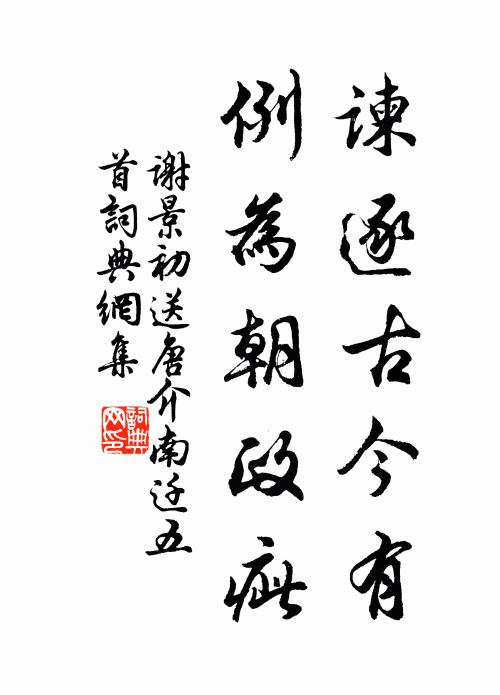 諫逐古今有
例為朝政疵
謝景初送唐介南迁五
首詞典網集
詞典
网印